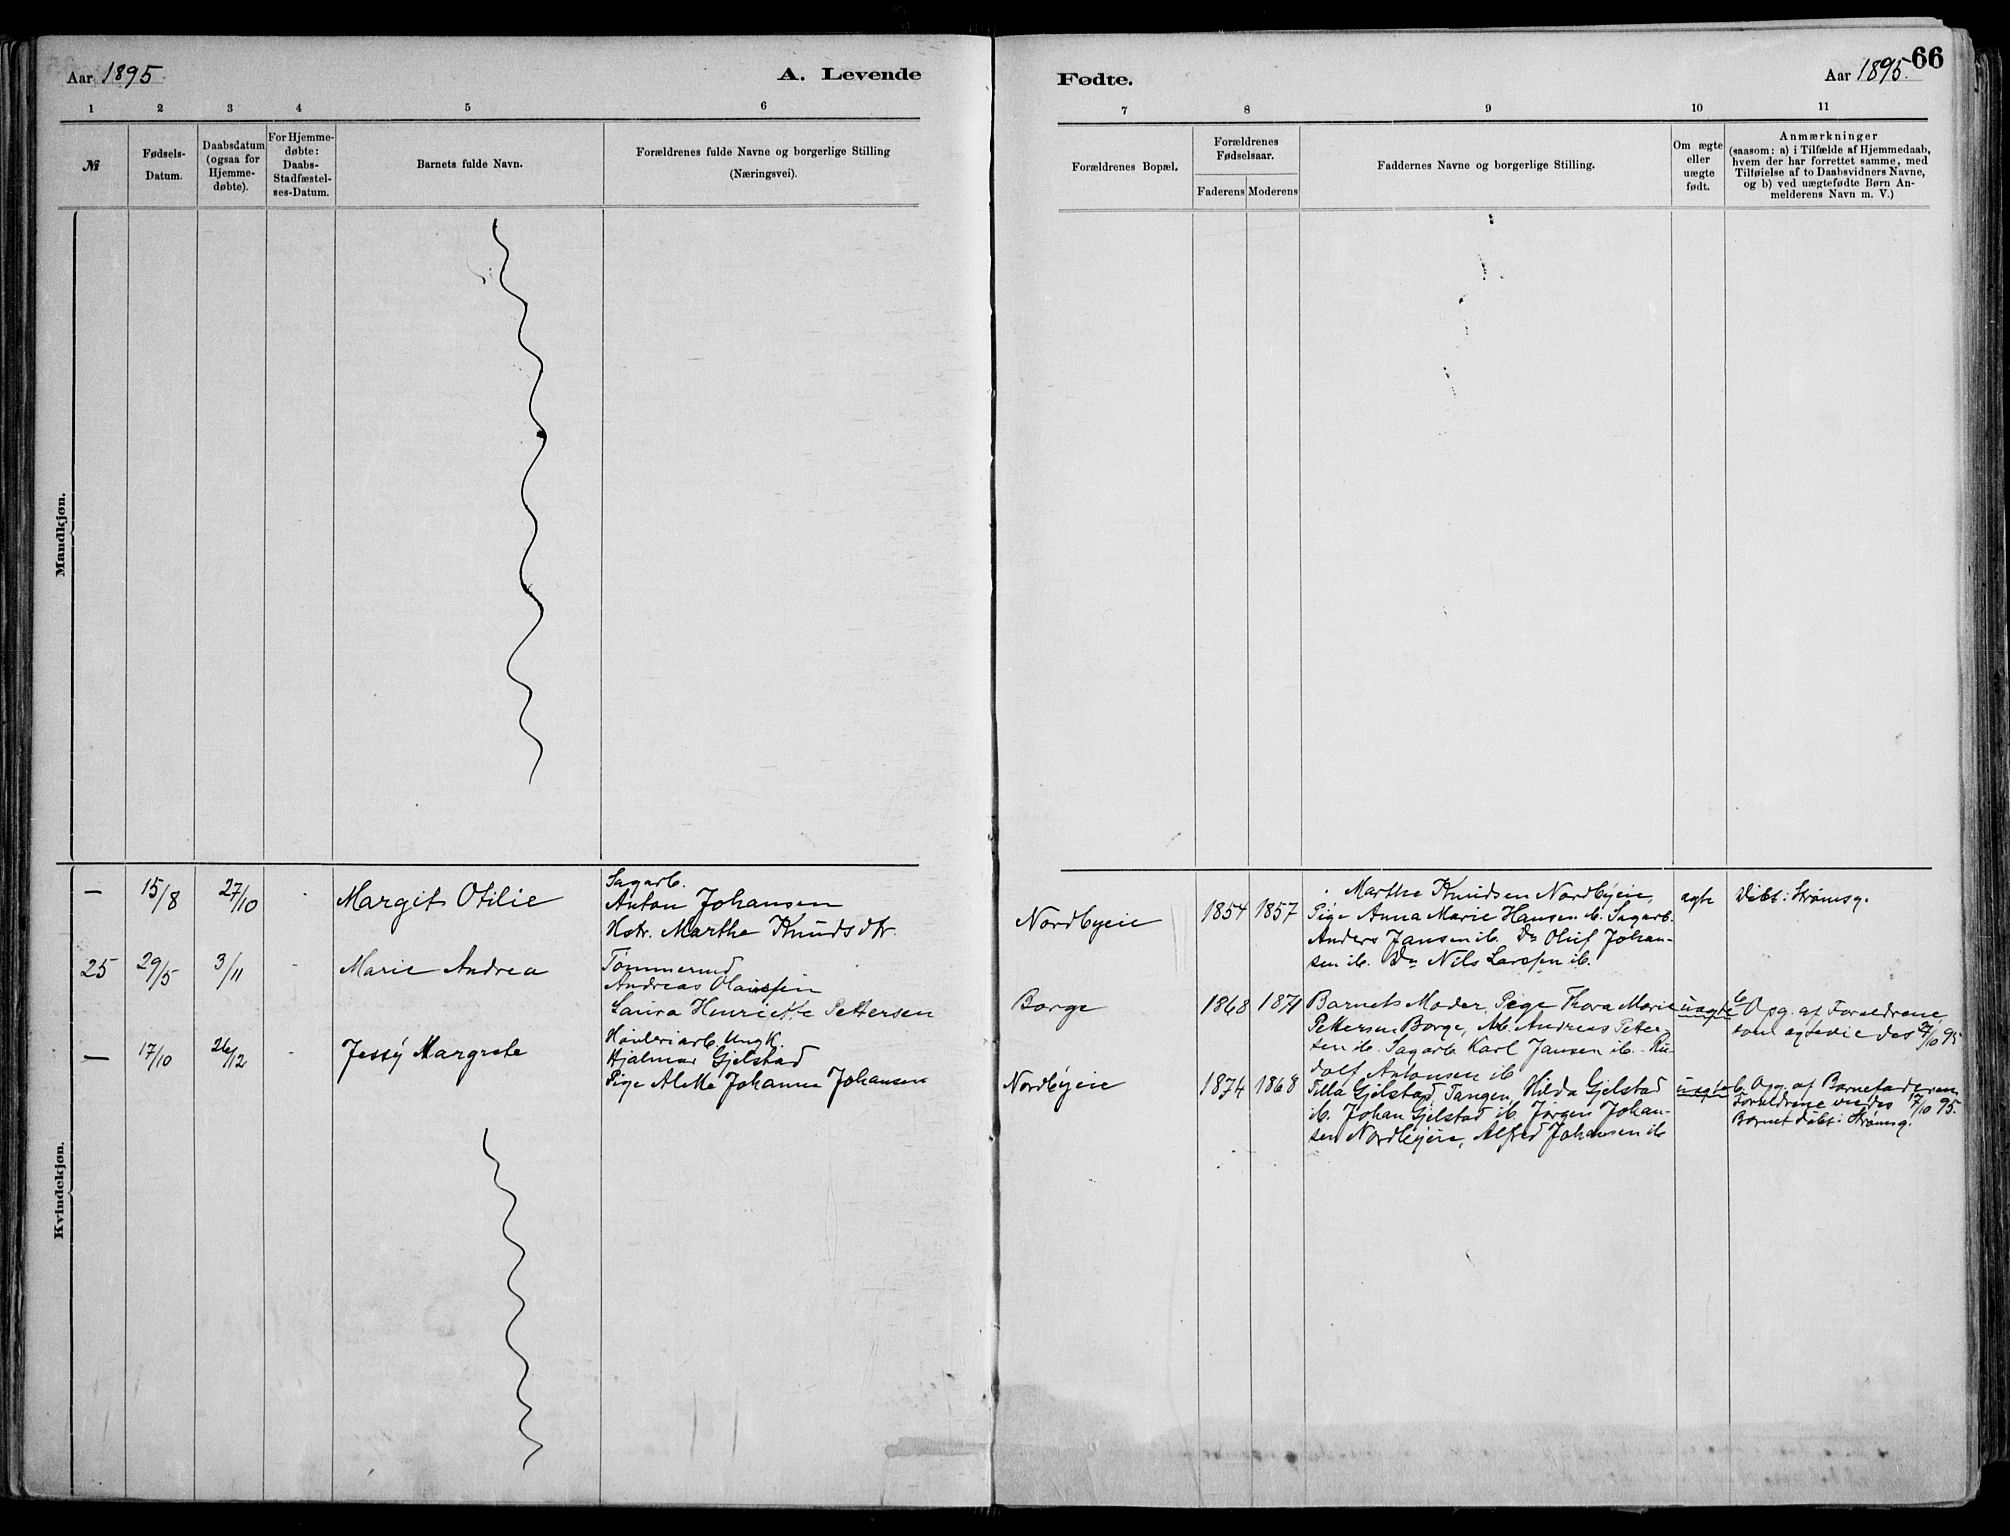 Aar 1895
A. Levende
Fødte.
Aar 1895.
66
1 2 3 4 5 6 7 8 9 10 11
№
Fødsels-
Datum.
Daabsdatum
(ogsaa for
Hjemme-
døbte).
For Hjemme-
døbte:
Daabs-
Stadfæstel-
ses-Datum.
Barnets fulde Navn.
Forældrenes fulde Navne og borgerlige Stilling
(Næringsvei).
Forældrenes Bopæl.
Forældrenes
Fødselsaar.
Faderens Moderens
Faddernes Navne og borgerlige Stilling.
Om ægte
eller
uægte
født.
Anmærkninger
(saasom: a) i Tilfælde af Hjemmedaab,
hvem der har forrettet samme, med
Tilføielse af to Daabsvidners Navne,
og b) ved uægtefødte Børn An-
melderens Navn m. V.)
Mandkjøn.
Kvindekjøn.
— 15/8 27/10 Margit Otilie
Sagarb.
Anton Johansen
Hstr. Marthe Knudsdtr.
Nordbyeie 1854 1857
Marthe Knudsen Nordbyeie,
Pige Anna Marie Hansen ib. Sagarb.
Anders Jansen ib. Do Oluf Johan-
sen ib. Do Nils Larssen ib.
ægte
Døbt: Strømsg.
25 29/5 3/11 Marie Andrea
Tømmermd
Andreas Olaussen
Laura Henriette Pettersen
Borge 1868 1871
Barnets Moder, Pige Thora Marie
Pettersen Borge, Andreas Petter-
sen ib. Sagarb. Karl Jansen ib. Ru-
dolf Antonsen ib
uægte
b. Opg. af Forældrene,
som ægtevie des 10 95
— 17/10 26/12 Jessy Margrete
Høvleriarb. Ungk.
Hjalmar Gjelstad
Pige Alette Johanne Johansen
Nordbyeie 1874 1868
Tilla Gjelstad, Tangen, Hilda Gjelstad
ib. Johan Gjelstad ib. Jørgen Johan-
sen Nordbyeie, Alfred Johansen ib
uægte
b. Opg. af Barnefaderen
Forældrene viedes 17/10 95.
Barnet døbt: Strømsg.